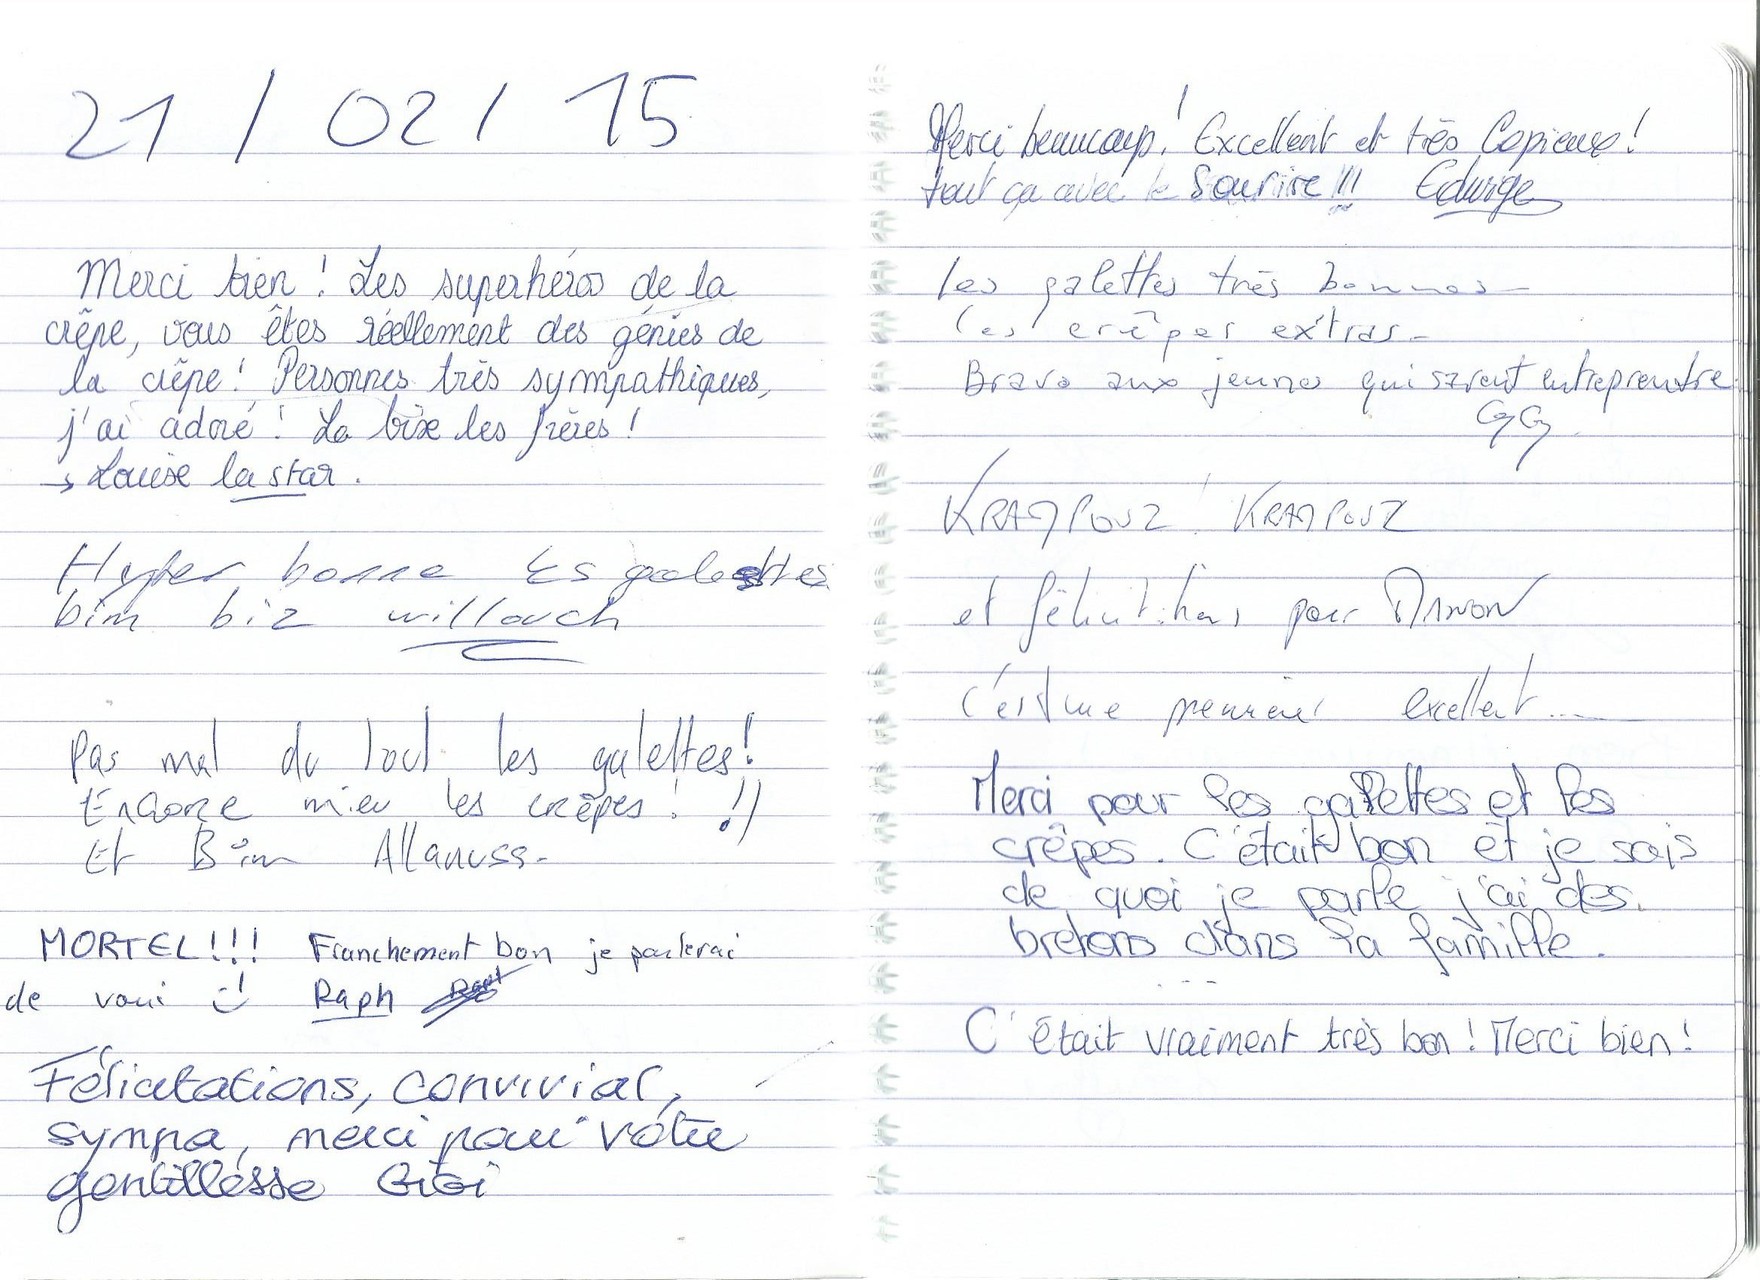 21 / 02 / 15
Merci bien ! Les superhéros de la
crêpe, vous êtes réellement des génies de
la crêpe ! Personnes très sympathiques,
j'ai adoré ! La bise les frères !
→ Louise la star .
Hyper bonne les galettes
bim biz willouch
Pas mal du tout les galettes !
Encore mieu les crêpes ! !!
Et Bim Allanuss-
MORTEL!!! Franchement bon je parlerai
de vous Raph
Félicitations, convivial,
sympa, merci pour vôtre
gentillesse Gigi
Merci beaucoup ! Excellent et très Copieux !
tout ça avec le Sourire !!! Edwige
Les galettes très bonnes -
les crêpes extras -
Bravo aux jeunes qui savent entreprendre
GG
KRAMPOUZ ! KRAMPOUZ
et félicitations pour MANON
c'est une première excellent....
Merci pour les galettes et les
crêpes. C'était bon et je sais
de quoi je parle j'ai des
bretons dans la famille.
...
C'était vraiment très bon ! Merci bien !